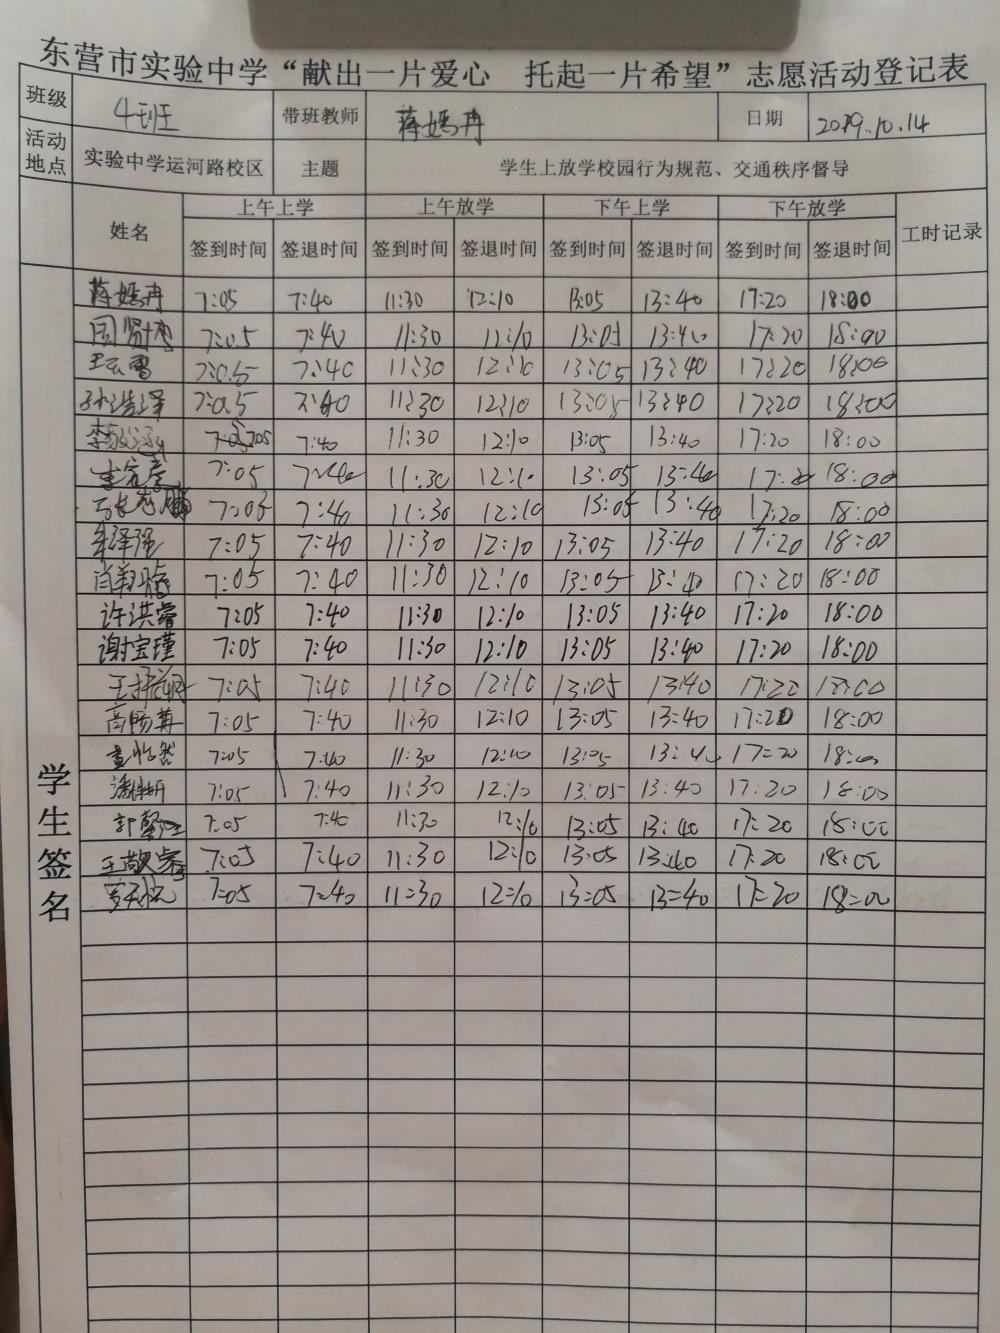 东营市实验中学“献出一片爱心 托起一片希望”志愿活动登记表
班级 4班 带班教师 蒋嫣冉 日期 2019.10.14
活动地点 实验中学运河路校区 主题 学生上放学校园行为规范、交通秩序督导
姓名 上午上学 上午放学 下午上学 下午放学 工时记录
签到时间 签退时间 签到时间 签退时间 签到时间 签退时间 签到时间 签退时间
学生签名
蒋嫣冉 7:05 7:40 11:30 12:10 13:05 13:40 17:20 18:00
7:05 7:40 11:30 12:10 13:05 13:40 17:20 18:00
7:05 7:40 11:30 12:10 13:05 13:40 17:20 18:00
孙浩泽 7:05 7:40 11:30 12:10 13:05 13:40 17:20 18:00
7:05 7:40 11:30 12:10 13:05 13:40 17:20 18:00
7:05 7:40 11:30 12:10 13:05 13:40 17:20 18:00
7:05 7:40 11:30 12:10 13:05 13:40 17:20 18:00
7:05 7:40 11:30 12:10 13:05 13:40 17:20 18:00
7:05 7:40 11:30 12:10 13:05 13:40 17:20 18:00
许洪睿 7:05 7:40 11:30 12:10 13:05 13:40 17:20 18:00
谢宝瑾 7:05 7:40 11:30 12:10 13:05 13:40 17:20 18:00
7:05 7:40 11:30 12:10 13:05 13:40 17:20 18:00
7:05 7:40 11:30 12:10 13:05 13:40 17:20 18:00
7:05 7:40 11:30 12:10 13:05 13:40 17:20 18:00
7:05 7:40 11:30 12:10 13:05 13:40 17:20 18:00
7:05 7:40 11:30 12:10 13:05 13:40 17:20 18:00
7:05 7:40 11:30 12:10 13:05 13:40 17:20 18:00
7:05 7:40 11:30 12:10 13:05 13:40 17:20 18:00